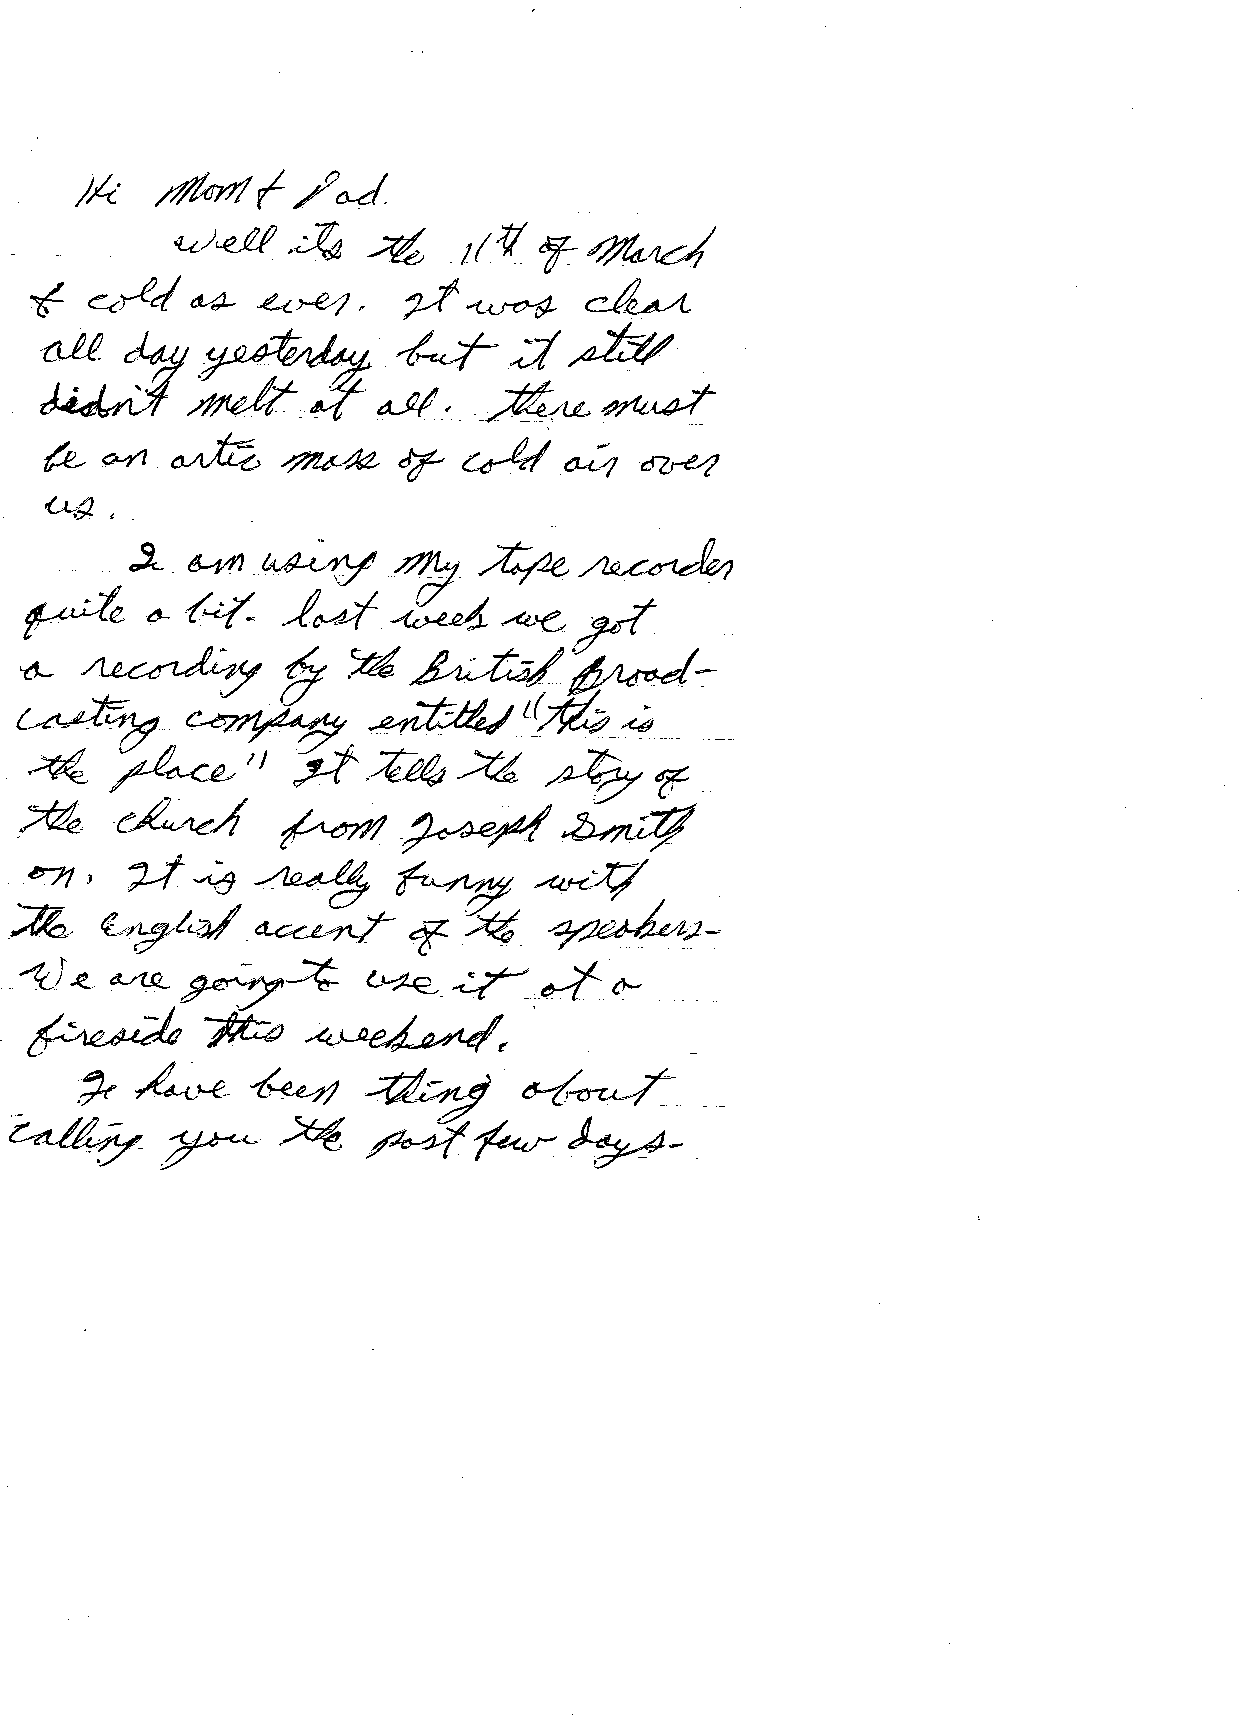 Hi Mom & Dad.
Well its the 11th of March
& cold as ever. It was clear
all day yesterday but it still
didn't melt at all. there must
be an artic mass of cold air over
us.
I am using my tape recorder
quite a bit. last week we got
a recording by the British Broad-
casting company entitled "this is
the place" It tells the story of
the church from Joseph Smith
on. It is really funny with
the english accent of the speakers-
We are going to use it at a
fireside this weekend.
I have been thing about
calling you the past few days-